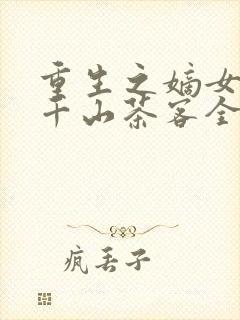 重生之嫡女
千山茶客全
疯丢子